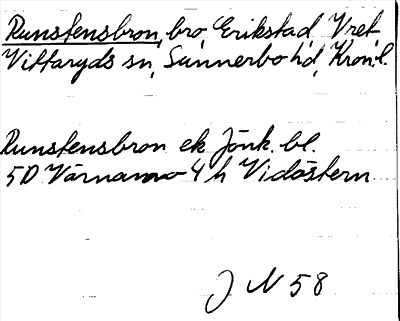 Runstensbron, bro, Erikstad Vret,
Vittaryds sn, Sunnerbo hd, Kron.l.
Runstensbron ek Jönk. bl.
5D Värnamo 4 h Vidöstern
J N 58